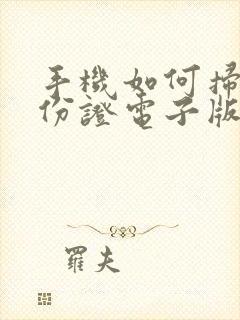 手機如何掃
份證電子版
羅夫